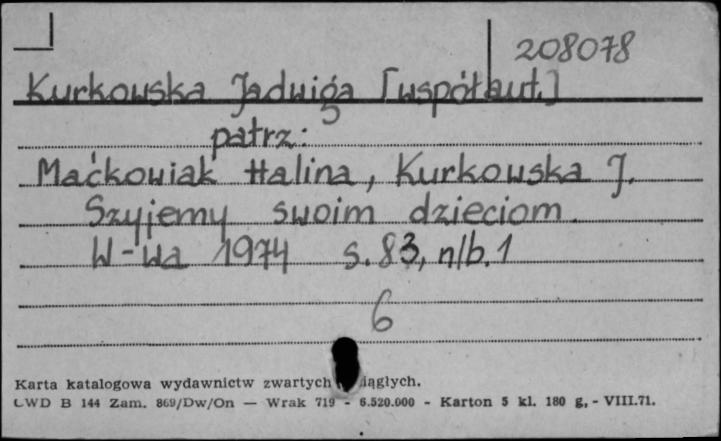 208078
Kurkowska Jadwiga [współaut.]
patrz:
Maćkowiak Halina, Kurkowska J.
Szyjemy swoim dzieciom.
W-wa 1974 s. 83, nlb. 1
6
Karta katalogowa wydawnictw zwartych i ciągłych.
CWD B 144 Zam. 869/Dw/On — Wrak 719 - 6.520.000 - Karton 5 kl. 180 g, - VIII.71.